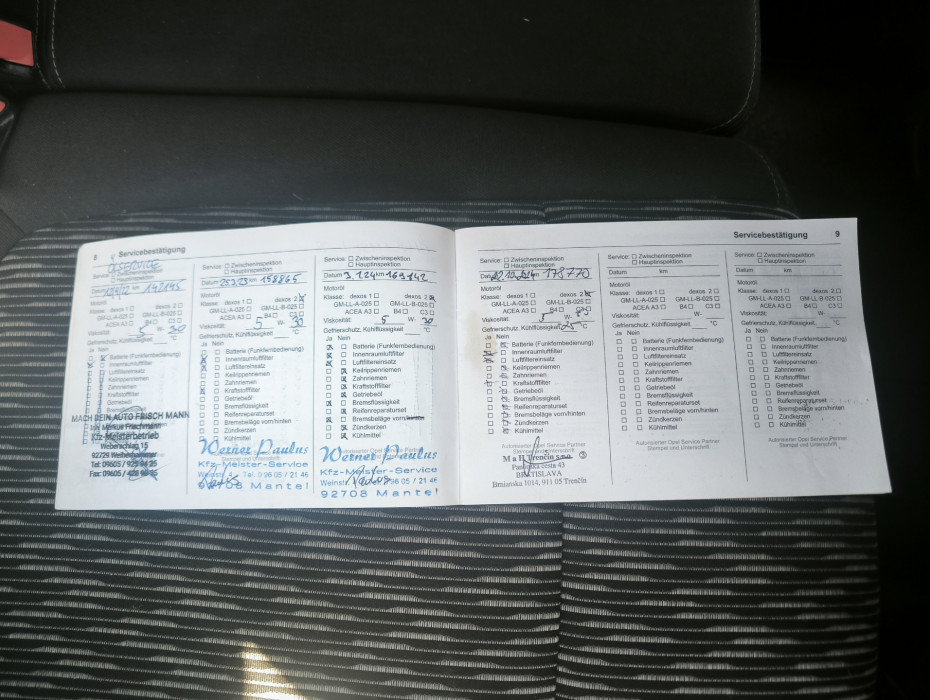 8 Servicebestätigung
ÖLSERVICE
Service:
Datum km 142145
Motoröl
Klasse: dexos 1 ☐ dexos 2 ☐
GM-LL-A-025 ☐ GM-LL-B-025 ☐
ACEA A3 ☐ B4 ☐ C3 ☐
Viskosität: 5 W- 30
Gefrierschutz, Kühlflüssigkeit °C
Ja Nein
Batterie (Funkfernbedienung)
Innenraumluftfilter
Luftfiltereinsatz
Keilrippenriemen
Zahnriemen
Kraftstofffilter
Getriebeöl
Bremsflüssigkeit
MACH DEIN AUTO FRISCH MANN
Inh. Markus Frischmann
Kfz-Meisterbetrieb
Weberschlag 15
92729 Weiherhammer
Tel: 09605 /
Fax: 09605 /
Service: ☐ Zwischeninspektion
☐ Hauptinspektion
Datum km 158865
Motoröl
Klasse: dexos 1 ☐ dexos 2
GM-LL-A-025 ☐ GM-LL-B-025 ☐
ACEA A3 ☐ B4 ☐ C3 ☐
Viskosität: 5 W- 30
Gefrierschutz, Kühlflüssigkeit °C
Ja Nein
Batterie (Funkfernbedienung)
Innenraumluftfilter
Luftfiltereinsatz
Keilrippenriemen
Zahnriemen
Kraftstofffilter
Getriebeöl
Bremsflüssigkeit
Reifenreparaturset
Bremsbeläge vorn/hinten
Zündkerzen
Kühlmittel
Werner Paulus
Kfz-Meister-Service
Weinstr. 4 Tel. 0 96 05 / 21 46
92708 Mantel
Service: ☐ Zwischeninspektion
☐ Hauptinspektion
Datum 3.1.24 km 169142
Motoröl
Klasse: dexos 1 ☐ dexos 2
GM-LL-A-025 ☐ GM-LL-B-025 ☐
ACEA A3 ☐ B4 ☐ C3 ☐
Viskosität: 5 W- 30
Gefrierschutz, Kühlflüssigkeit °C
Ja Nein
Batterie (Funkfernbedienung)
Innenraumluftfilter
Luftfiltereinsatz
Keilrippenriemen
Zahnriemen
Kraftstofffilter
Getriebeöl
Bremsflüssigkeit
Reifenreparaturset
Bremsbeläge vorn/hinten
Zündkerzen
Kühlmittel
Autorisierter Opel Service Partner
Stempel und Unterschrift
Werner Paulus
Kfz-Meister-Service
Weinstr. 0 96 05 / 21 46
92708 Mantel
Servicebestätigung 9
Service: ☐ Zwischeninspektion
☐ Hauptinspektion
Datum km 178770
Motoröl
Klasse: dexos 1 ☐ dexos 2
GM-LL-A-025 ☐ GM-LL-B-025 ☐
ACEA A3 ☐ B4 ☐ C3 ☐
Viskosität: 5 W-
Gefrierschutz, Kühlflüssigkeit °C
Ja Nein
Batterie (Funkfernbedienung)
Innenraumluftfilter
Luftfiltereinsatz
Keilrippenriemen
Zahnriemen
Kraftstofffilter
Getriebeöl
Bremsflüssigkeit
Reifenreparaturset
Bremsbeläge vorn/hinten
Zündkerzen
Kühlmittel
Autorisierter Opel Service Partner
Stempel und Unterschrift
M a H Trenčín s.r.o. 3
cesta 43
BRATISLAVA
Brnianska 1014, 911 05 Trenčín
Service: ☐ Zwischeninspektion
☐ Hauptinspektion
Datum km
Motoröl
Klasse: dexos 1 ☐ dexos 2 ☐
GM-LL-A-025 ☐ GM-LL-B-025 ☐
ACEA A3 ☐ B4 ☐ C3 ☐
Viskosität: W-
Gefrierschutz, Kühlflüssigkeit °C
Ja Nein
☐ ☐ Batterie (Funkfernbedienung)
☐ ☐ Innenraumluftfilter
☐ ☐ Luftfiltereinsatz
☐ ☐ Keilrippenriemen
☐ ☐ Zahnriemen
☐ ☐ Kraftstofffilter
☐ ☐ Getriebeöl
☐ ☐ Bremsflüssigkeit
☐ ☐ Reifenreparaturset
☐ ☐ Bremsbeläge vorn/hinten
☐ ☐ Zündkerzen
☐ ☐ Kühlmittel
Autorisierter Opel Service Partner
Stempel und Unterschrift
Service: ☐ Zwischeninspektion
☐ Hauptinspektion
Datum km
Motoröl
Klasse: dexos 1 ☐ dexos 2 ☐
GM-LL-A-025 ☐ GM-LL-B-025 ☐
ACEA A3 ☐ B4 ☐ C3 ☐
Viskosität: W-
Gefrierschutz, Kühlflüssigkeit °C
Ja Nein
☐ ☐ Batterie (Funkfernbedienung)
☐ ☐ Innenraumluftfilter
☐ ☐ Luftfiltereinsatz
☐ ☐ Keilrippenriemen
☐ ☐ Zahnriemen
☐ ☐ Kraftstofffilter
☐ ☐ Getriebeöl
☐ ☐ Bremsflüssigkeit
☐ ☐ Reifenreparaturset
☐ ☐ Bremsbeläge vorn/hinten
☐ ☐ Zündkerzen
☐ ☐ Kühlmittel
Autorisierter Opel Service Partner
Stempel und Unterschrift